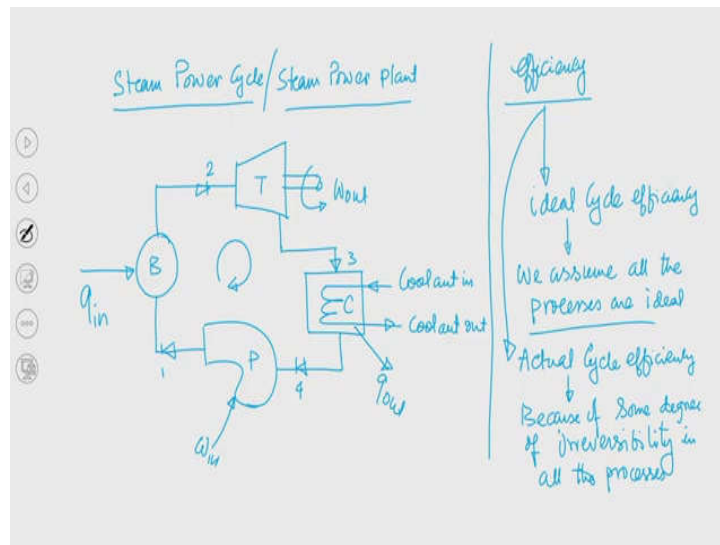 Steam Power Cycle/Steam Power plant
2
T
Wout
B
qin
3
Coolant in
C
Coolant out
P
1
4
qout
win
efficiency
ideal Cycle efficiency
We assume all the
processes are ideal
Actual Cycle efficiency
Because of Some degree
of irreversibility in
all the processes